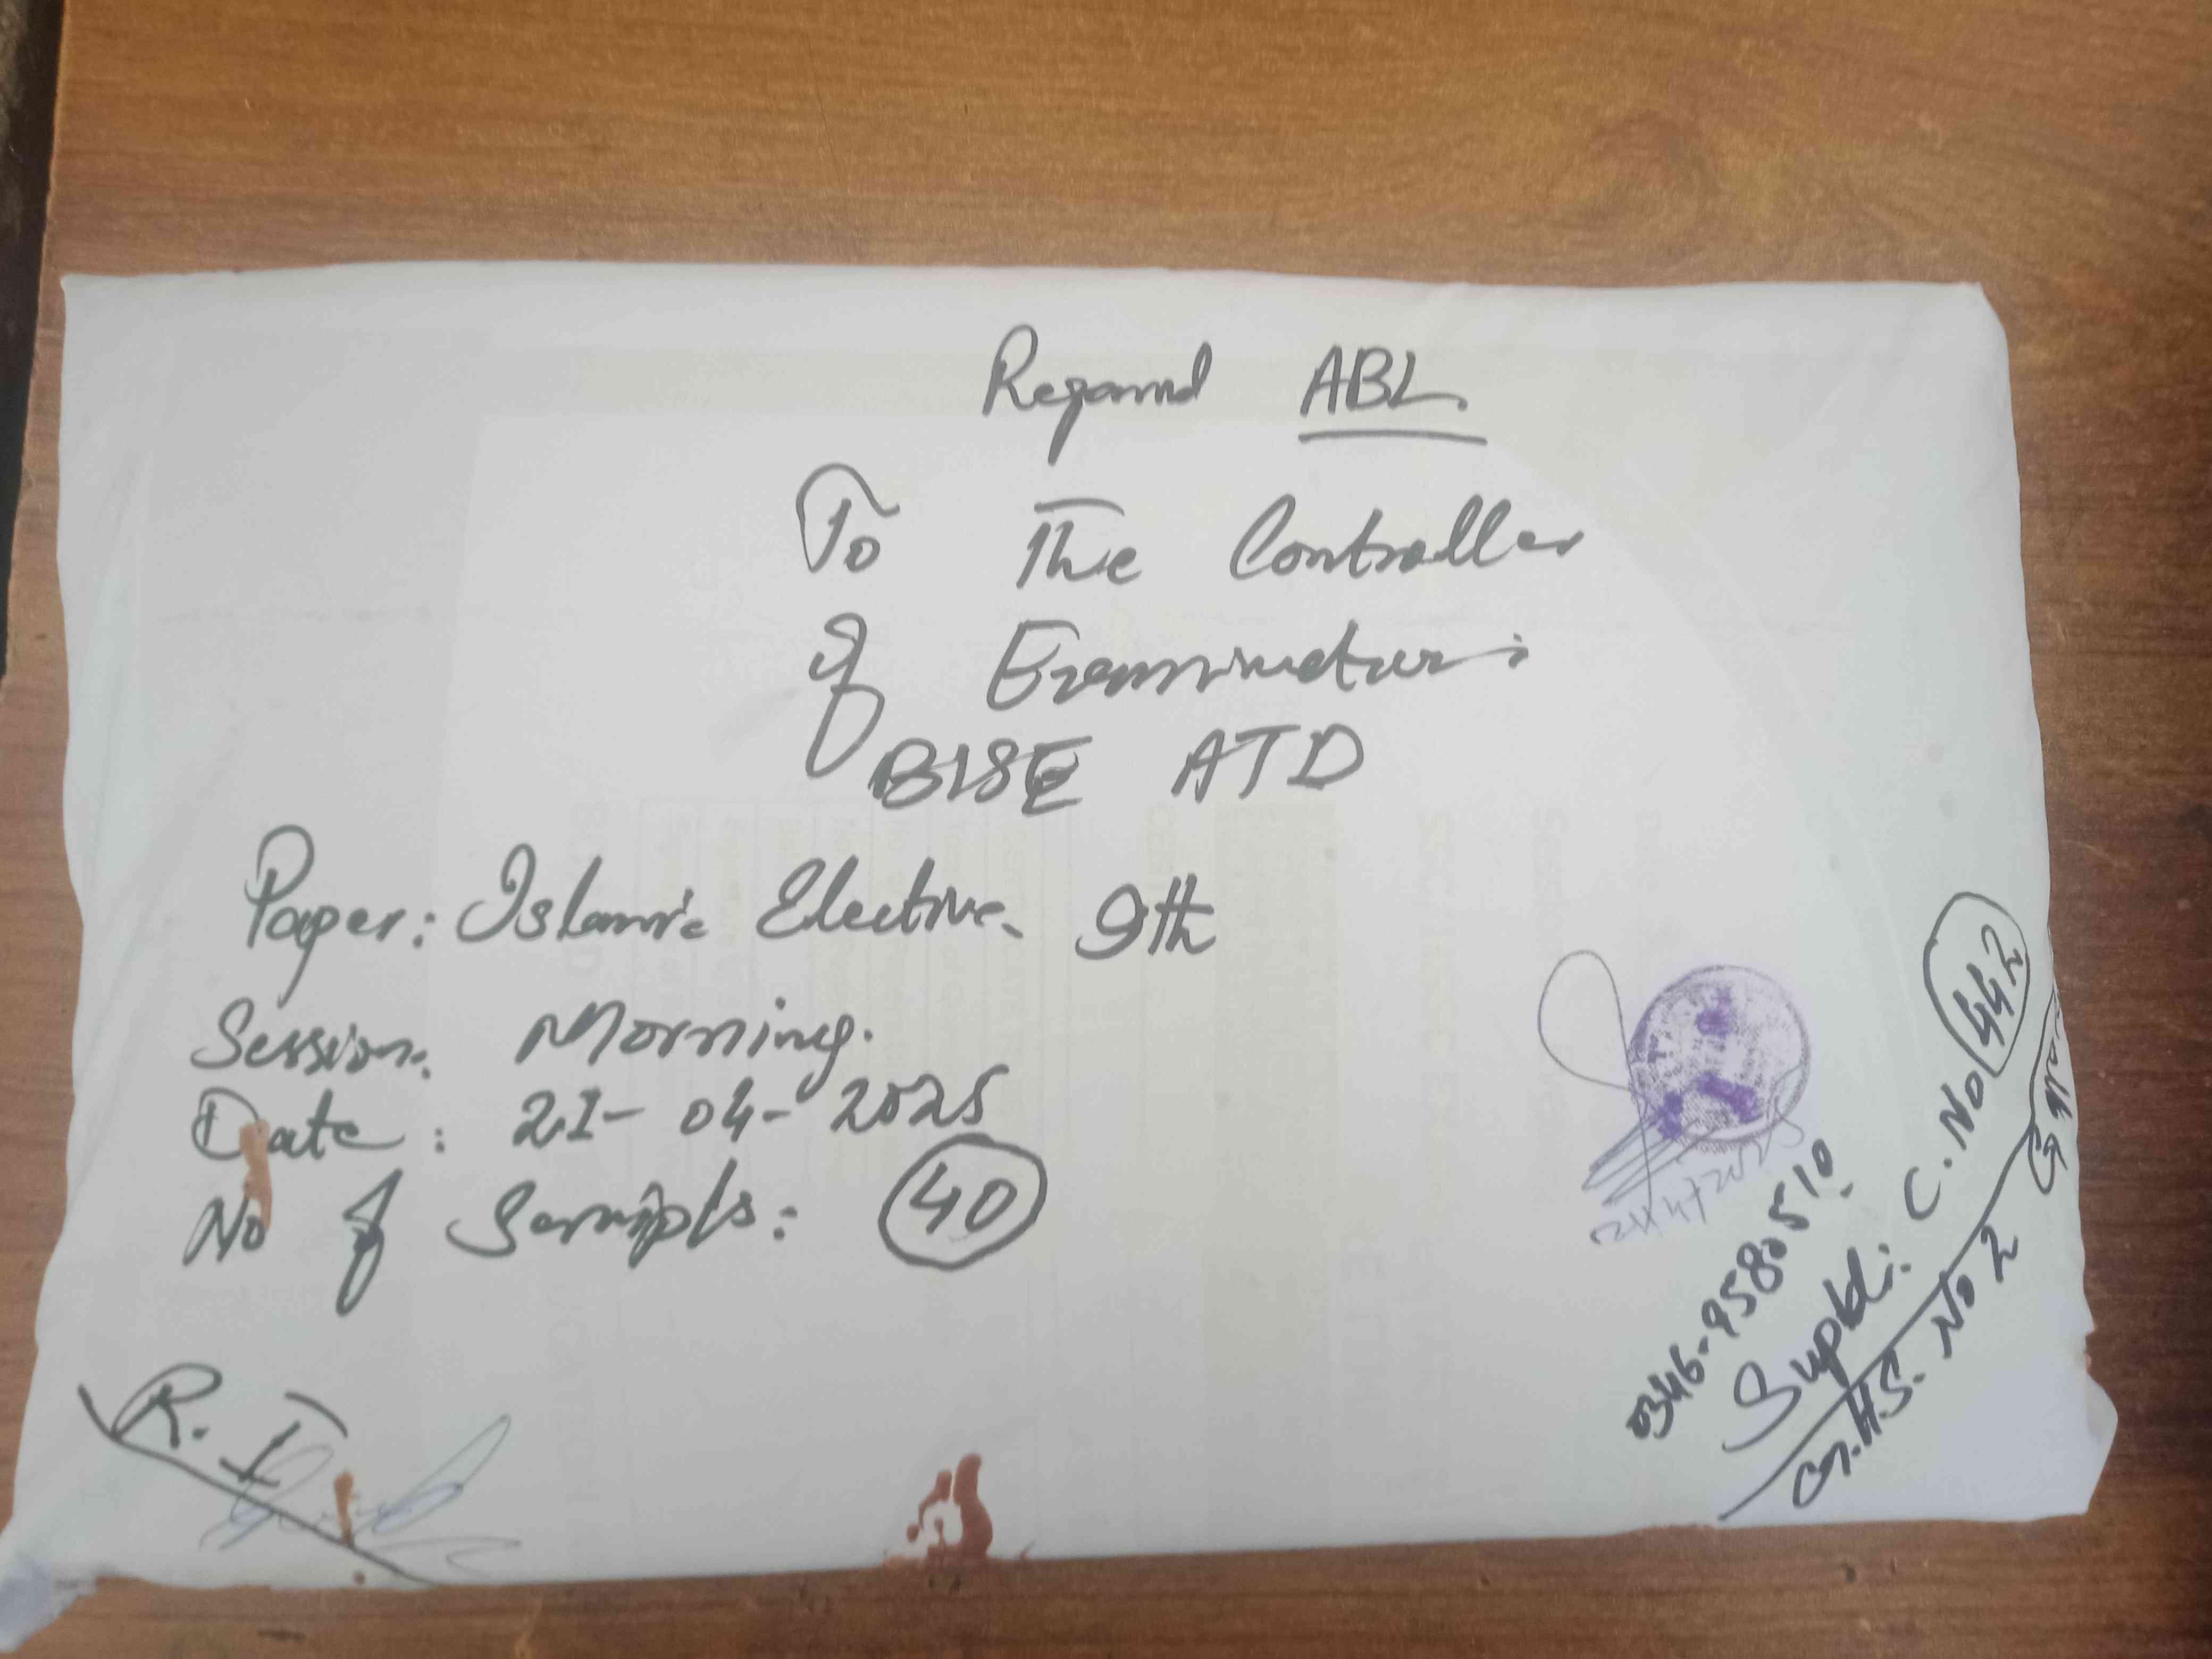 Regamd ABL.
To The Controller
of Examinations
BISE ATD
Paper: Islamic Elective 9th
Session. Morning.
Date: 21-04-2025
No of Scripts: 40
R. I
0346-9580510
Supdt: C. No 442
G.HS. No 2